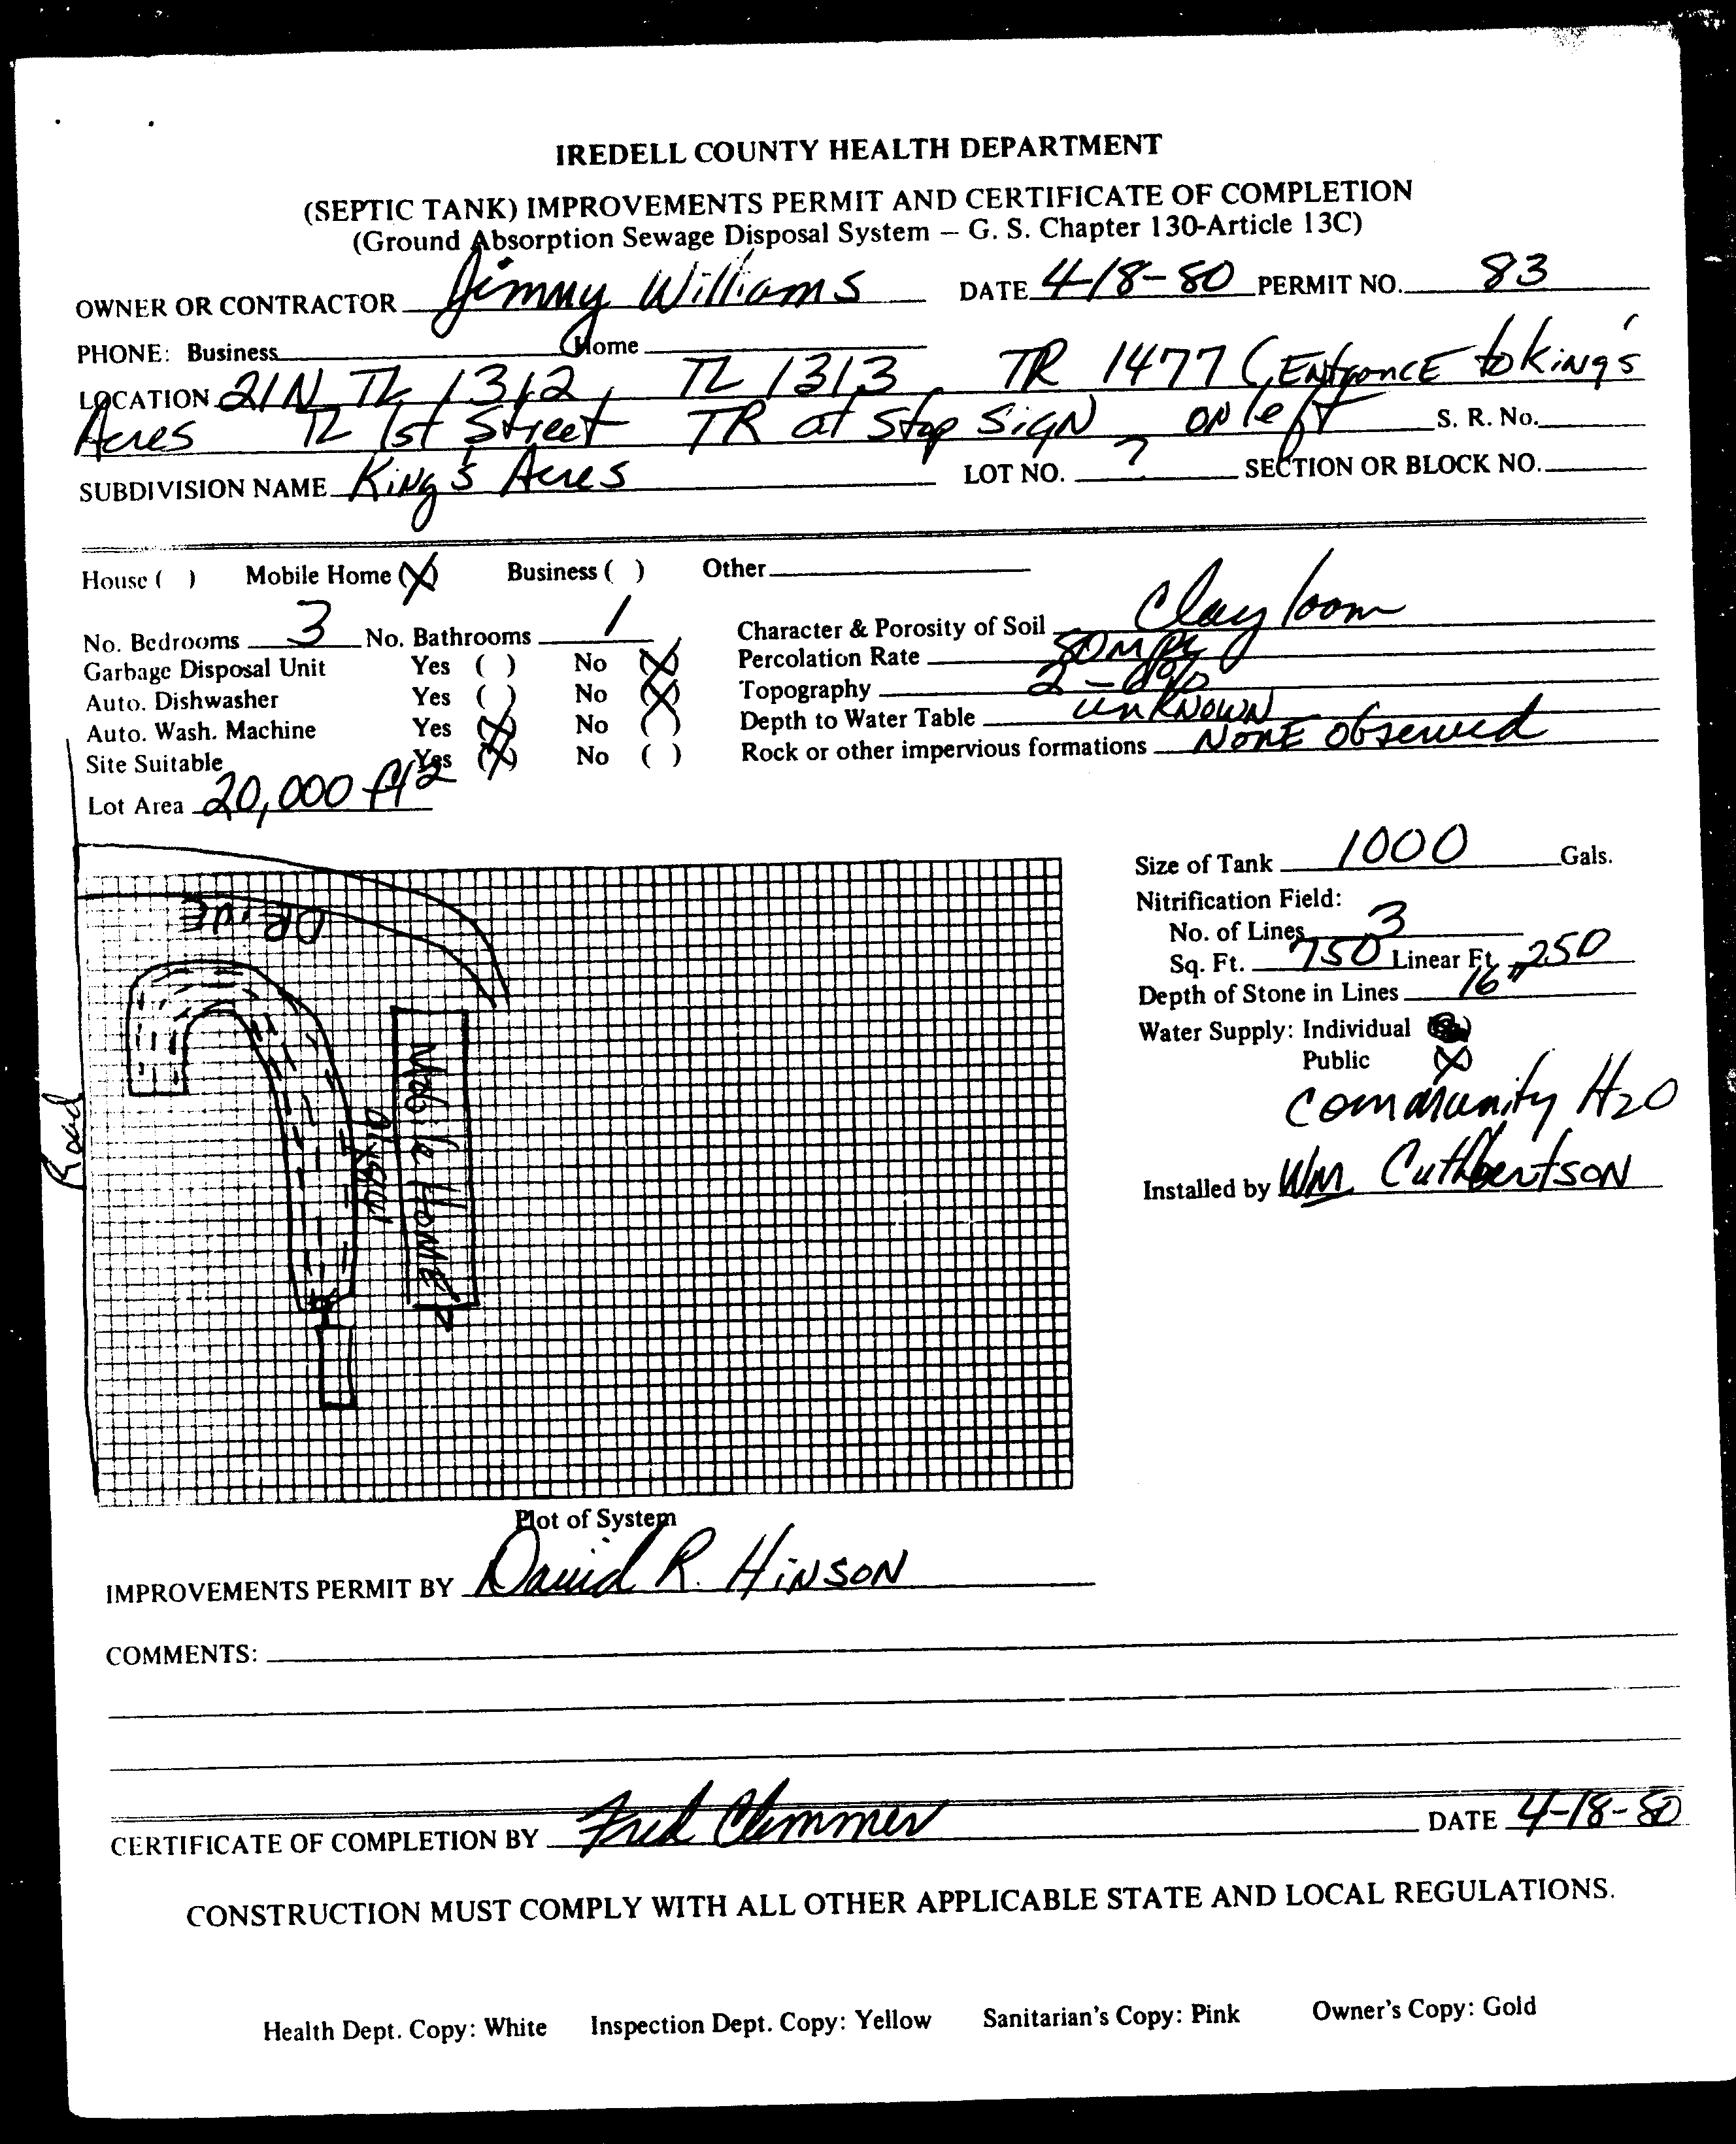 IREDELL COUNTY HEALTH DEPARTMENT
(SEPTIC TANK) IMPROVEMENTS PERMIT AND CERTIFICATE OF COMPLETION
(Ground Absorption Sewage Disposal System – G. S. Chapter 130-Article 13C)
OWNER OR CONTRACTOR Jimmy Williams DATE 4-18-80 PERMIT NO. 83
PHONE: Business Home
LOCATION 21N TL 1312, TL 1313, TR 1477 (Entrance to King's
Acres TL 1st Street TR at Stop Sign on left S. R. No.
SUBDIVISION NAME King's Acres LOT NO. ? SECTION OR BLOCK NO.
House ( ) Mobile Home (X) Business ( ) Other
No. Bedrooms 3 No. Bathrooms 1
Garbage Disposal Unit Yes ( ) No (X)
Auto. Dishwasher Yes ( ) No (X)
Auto. Wash. Machine Yes (X) No ( )
Site Suitable Yes (X) No ( )
Lot Area 20,000 ft2
Character & Porosity of Soil Clay loom
Percolation Rate
Topography
Depth to Water Table unknown
Rock or other impervious formations None Observed
Size of Tank 1000 Gals.
Nitrification Field:
No. of Lines 3
Sq. Ft. 750 Linear Ft. 250
Depth of Stone in Lines 16"
Water Supply: Individual
Public (X)
Community H2O
Installed by Wm Cuthbertson
Drive
Road
Mobile Home
Plot of System
IMPROVEMENTS PERMIT BY David R. Hinson
COMMENTS:
CERTIFICATE OF COMPLETION BY Fred Clemmer DATE 4-18-80
CONSTRUCTION MUST COMPLY WITH ALL OTHER APPLICABLE STATE AND LOCAL REGULATIONS.
Health Dept. Copy: White Inspection Dept. Copy: Yellow Sanitarian's Copy: Pink Owner's Copy: Gold